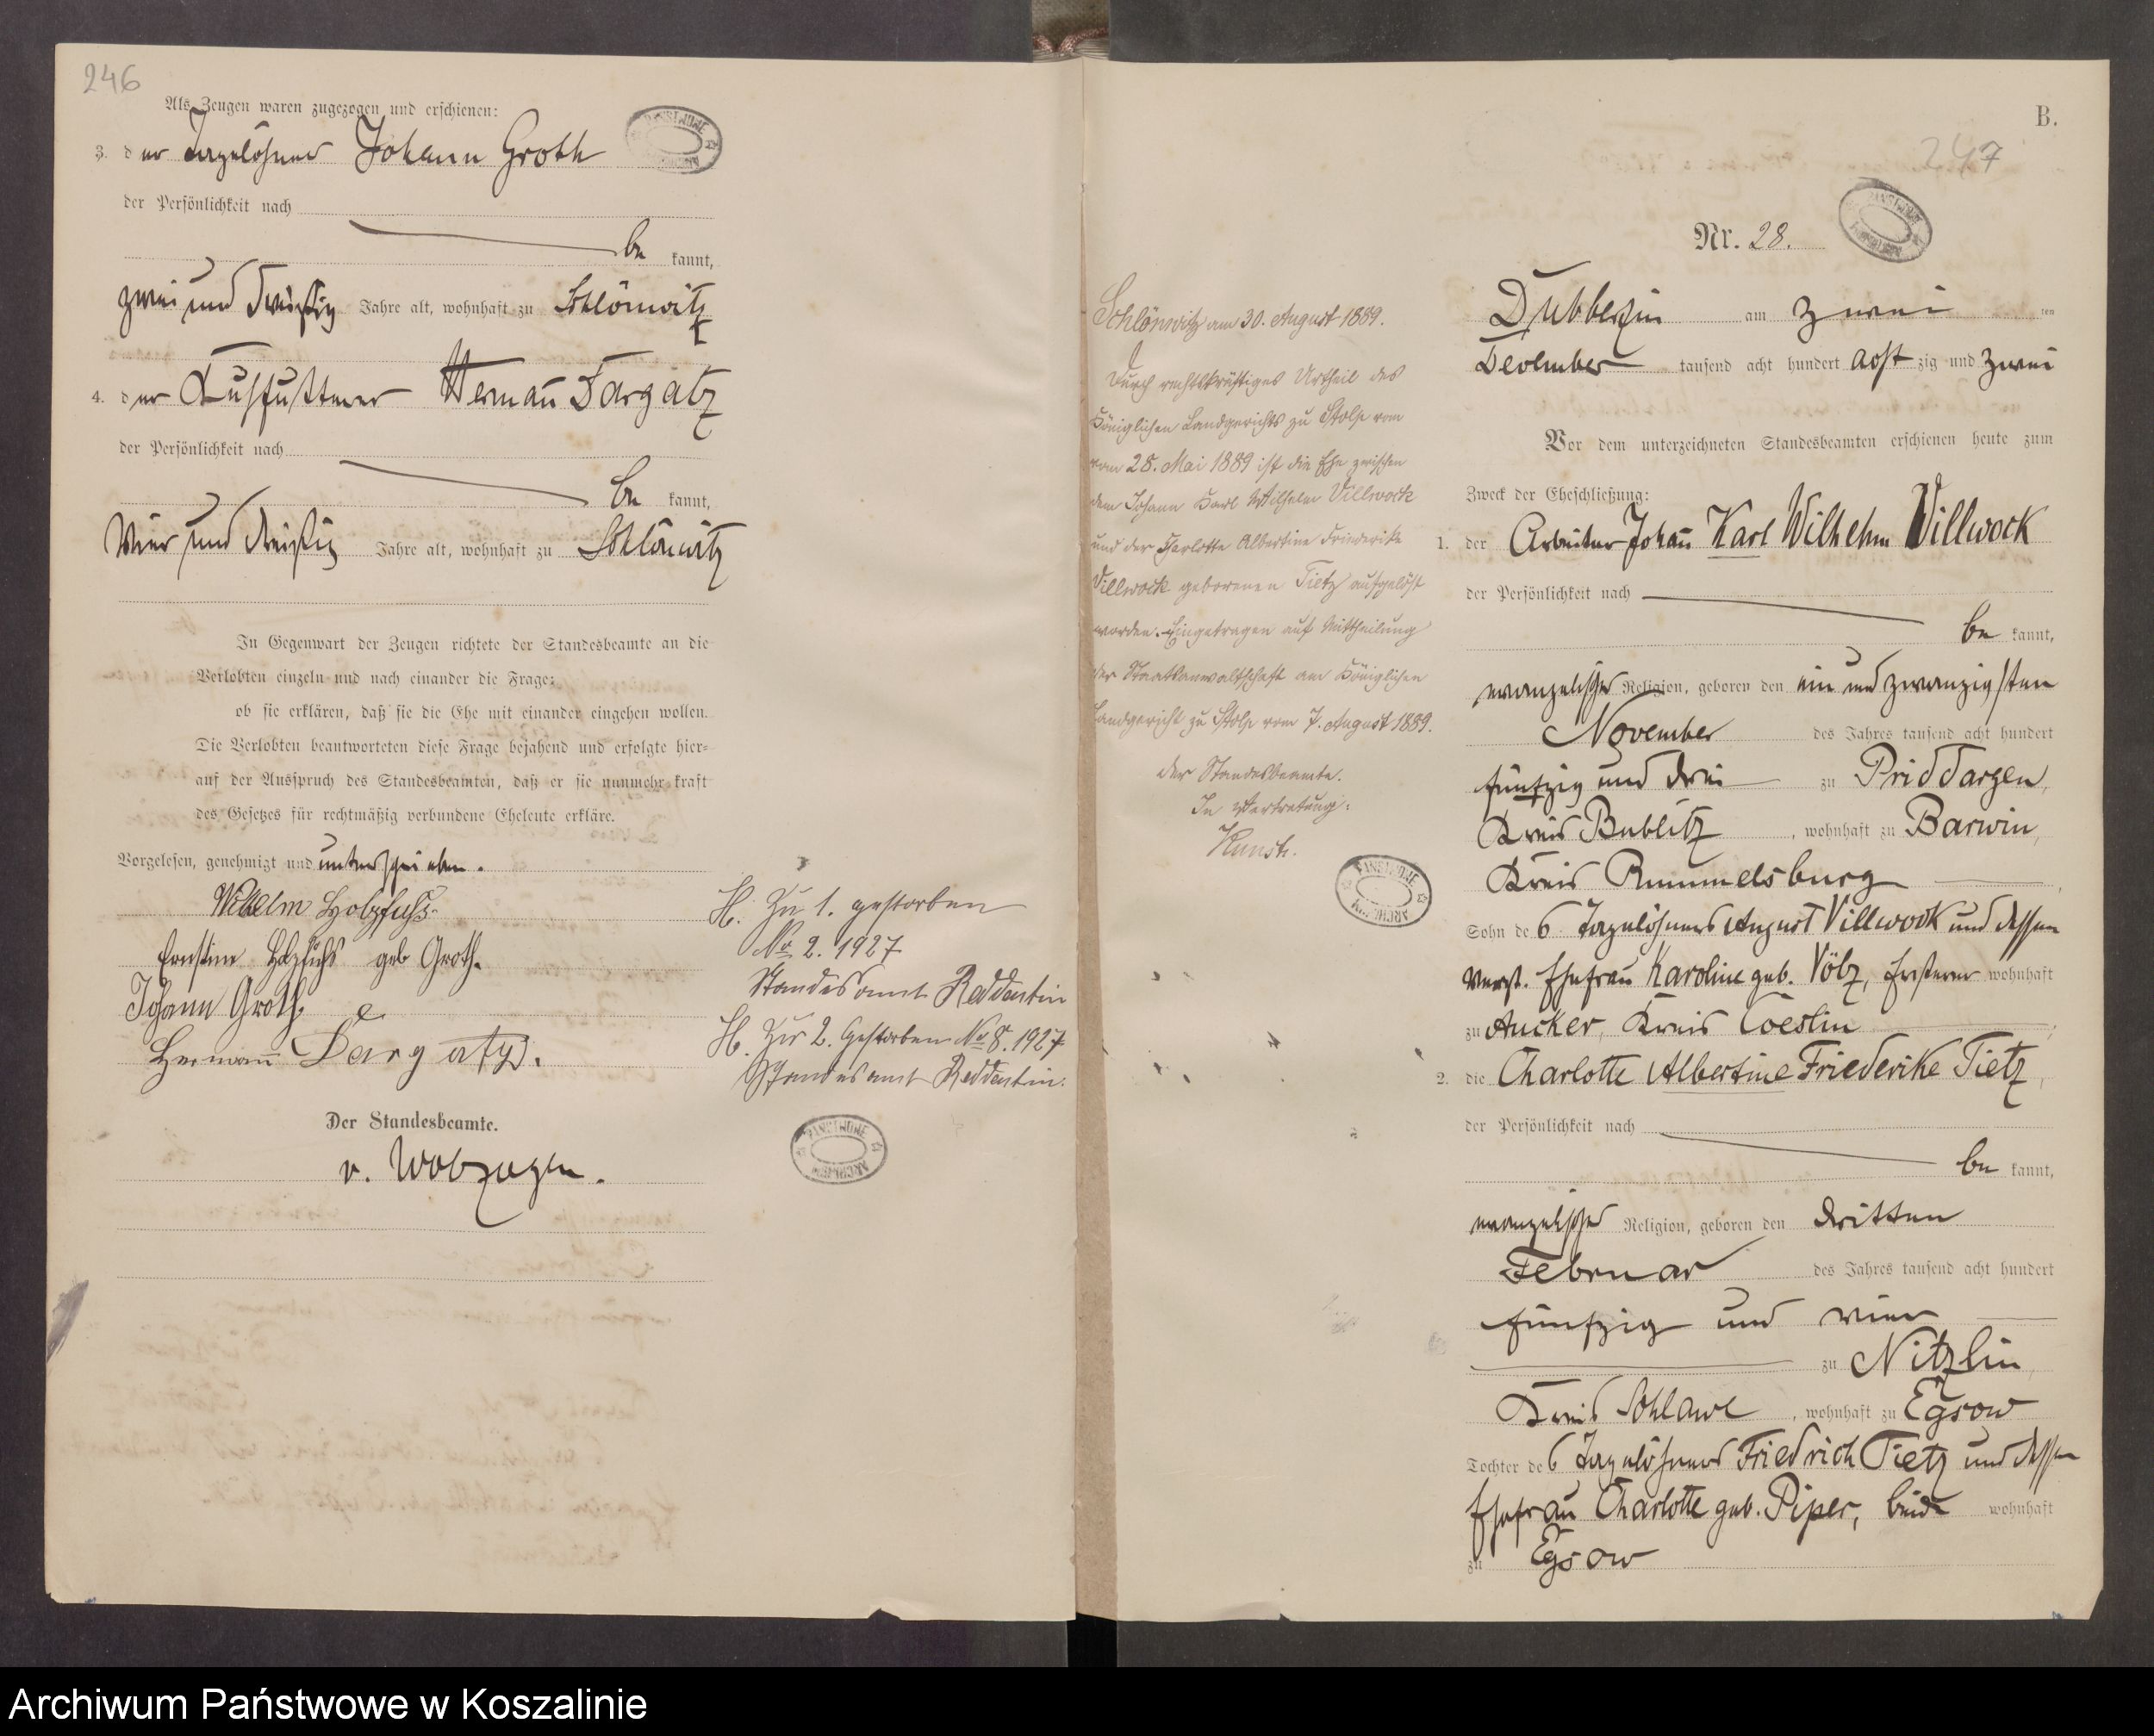 246
Als Zeugen waren zugezogen und erschienen:
3. der Tagelöhner Johann Groth
der Persönlichkeit nach
be kannt,
zwei und dreißig Jahre alt, wohnhaft zu Schlönwitz
4. der Kuhfütterer Hermañ Dargatz
der Persönlichkeit nach
be kannt,
Vier und dreißig Jahre alt, wohnhaft zu Schlönwitz
In Gegenwart der Zeugen richtete der Standesbeamte an die
Verlobten einzeln und nach einander die Frage:
ob sie erklären, daß sie die Ehe mit einander eingehen wollen.
Die Verlobten beantworteten diese Frage bejahend und erfolgte hier-
auf der Ausspruch des Standesbeamten, daß er sie nunmehr kraft
des Gesetzes für rechtmäßig verbundene Eheleute erkläre.
Vorgelesen, genehmigt und unterschrieben.
Wilhelm Holzfuß.
Ernstine Holzfuhs geb Groth.
Johann Groth.
Hermann Dargatz.
Der Standesbeamte.
v. Wobzugen.
H. Zu 1. gestorben
No 2. 1927
Standesamt Reddentin
H. Zur 2. Gestorben No 8. 1927
Standesamt Reddentin.
PANSTWOWE ARCHIWUM
B.
247
Nr. 28.
Schlönwitz am 30. August 1889.
Durch rechtskräftiges Urtheil des
Königlichen Landgerichts zu Stolp vom
vom 28. Mai 1889 ist die Ehe zwischen
dem Johann Karl Wilhelm Villwock
und der Charlotte Albertine Friederike
Villwock geborenen Tietz aufgelöst
worden. Eingetragen auf Mittheilung
der Staatsanwaltschaft am Königlichen
Landgericht zu Stolp vom 7. August 1889.
Der Standesbeamte.
In Vertretung:
Dubberzin am zwei ten
December tausend acht hundert acht zig und zwei
Vor dem unterzeichneten Standesbeamten erschienen heute zum
Zweck der Eheschließung:
1. der Arbeiter Johañ Karl Wilhelm Villwock
der Persönlichkeit nach
be kannt,
evangelischer Religion, geboren den ein und zwanzigsten
November des Jahres tausend acht hundert
fünfzig und drei zu Priddargen,
Kreis Bublitz, wohnhaft zu Barwin,
Kreis Rummelsburg
Sohn des Tagelöhners August Villwock und dessen
verst. Ehefrau Karoline geb. Völz, Ersterer wohnhaft
zu Aucker, Kreis Coeslin
2. die Charlotte Albertine Friederike Tietz,
der Persönlichkeit nach
be kannt,
evangelischer Religion, geboren den dritten
Februar des Jahres tausend acht hundert
fünfzig und vier
zu Nitzlin,
Kreis Schlawe, wohnhaft zu Egsow
Tochter des Tagelöhners Friedrich Tietz und dessen
Ehefrau Charlotte geb. Piper, beide wohnhaft
zu Egsow
Archiwum Państwowe w Koszalinie